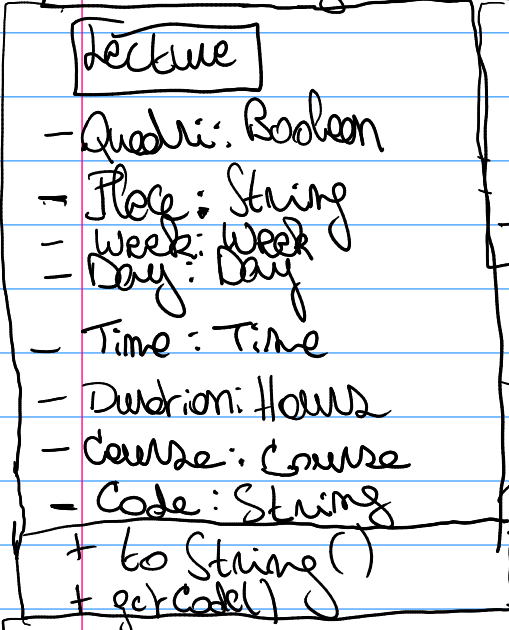 Lecture
- Quadri: Boolean
- Place: String
- Week: Week
- Day: Day
- Time: Time
- Duration: Hours
- Course: Course
- Code: String
+ to String()
+ getCode()